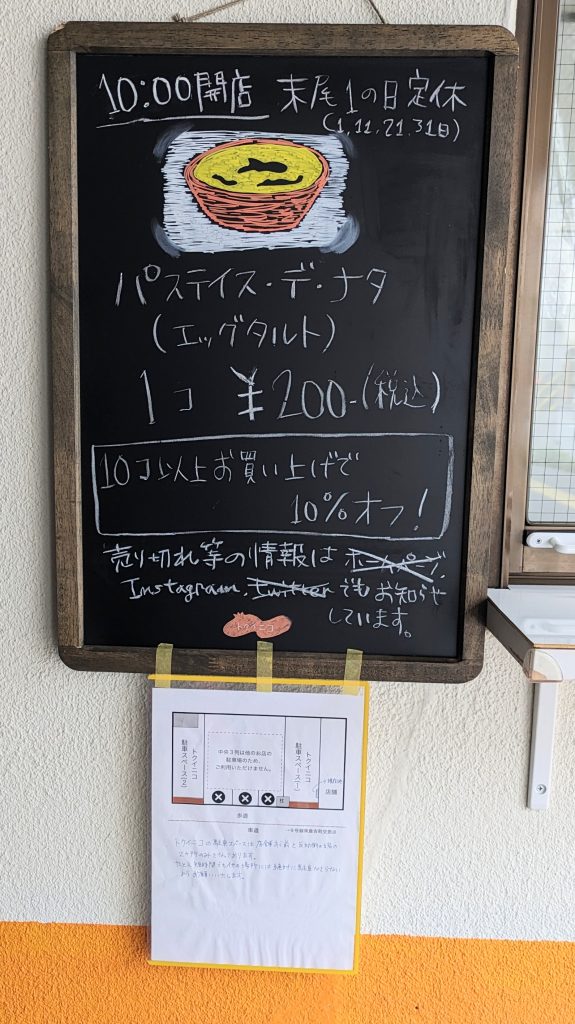 10:00開店 末尾1の日定休
(1,11,21,31日)
パステイス・デ・ナタ
(エッグタルト)
1コ ¥200-(税込)
10コ以上お買い上げで
10%オフ!
売り切れ等の情報はホームページ、
Instagram、Twitterでもお知らせ
しています。
トクイニコ
トクイニコ
駐車スペース(2)
中央3列は他のお店の
駐車場のため、
ご利用いただけません。
トクイニコ
駐車スペース(1)
店舗
歩道
車道
トクイニコの駐車スペースは店舗